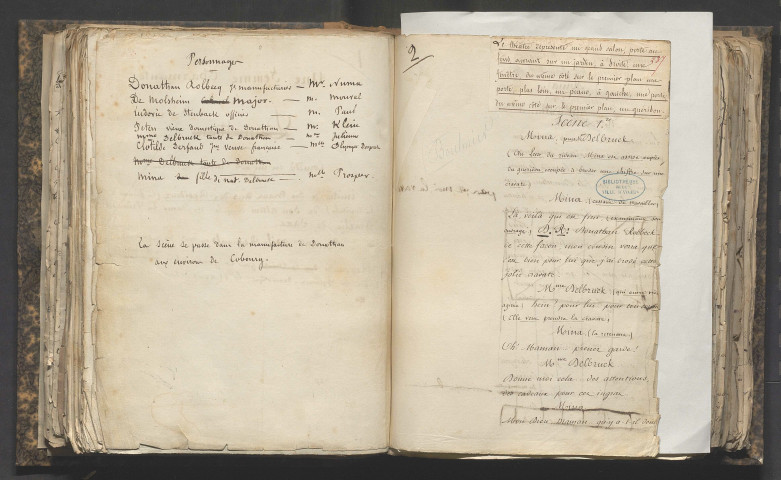 Personnages
Donathan Rolbecq jne manufacturier — Mr. Numa
De Molsheim major. — m. Monval
Ludovic de Steuback officier — m. Paul
Peter vieux domestique de Donathan — m. Klein
mme Delbruck tante de Donathan — mme Julienne
Clotilde jne veuve française — mlle
Mme Delbruck tante de Donathan
Mina fille de mad. Delbruck — mlle
La scène se passe dans la manufacture de Donathan
aux environs de Cobourg.
2
Le théâtre représente un grand salon, porte au
fond ouvrant sur un jardin, à droite une
fenêtre du même côté sur le premier plan une
porte, plus loin, un piano, à gauche, une porte
du même côté sur le premier plan, un guéridon
Scène 1re
Mina, Delbruck
(Au lever du rideau Mina est assise auprès
du guéridon occupée à broder un chiffre sur une
cravate)
BIBLIOTHÈQUE
DE LA
VILLE
Mina (cessant de travailler)
Là voilà qui est fini (examinant son
ouvrage) D. R. Donathan Rolbeck
de cette façon mon cousin verra que
c'est bien pour lui que j'ai brodé cette
jolie cravate
Mme Delbruck (qui
hein! pour lui pour
(elle veut prendre la cravate)
Mina (la retenant)
Oh! Maman prenez garde!
Mme Delbruck
Donne moi cela des attentions,
des cadeaux pour cet ingrat
Mina
Mon Dieu maman qu'y a t'il donc